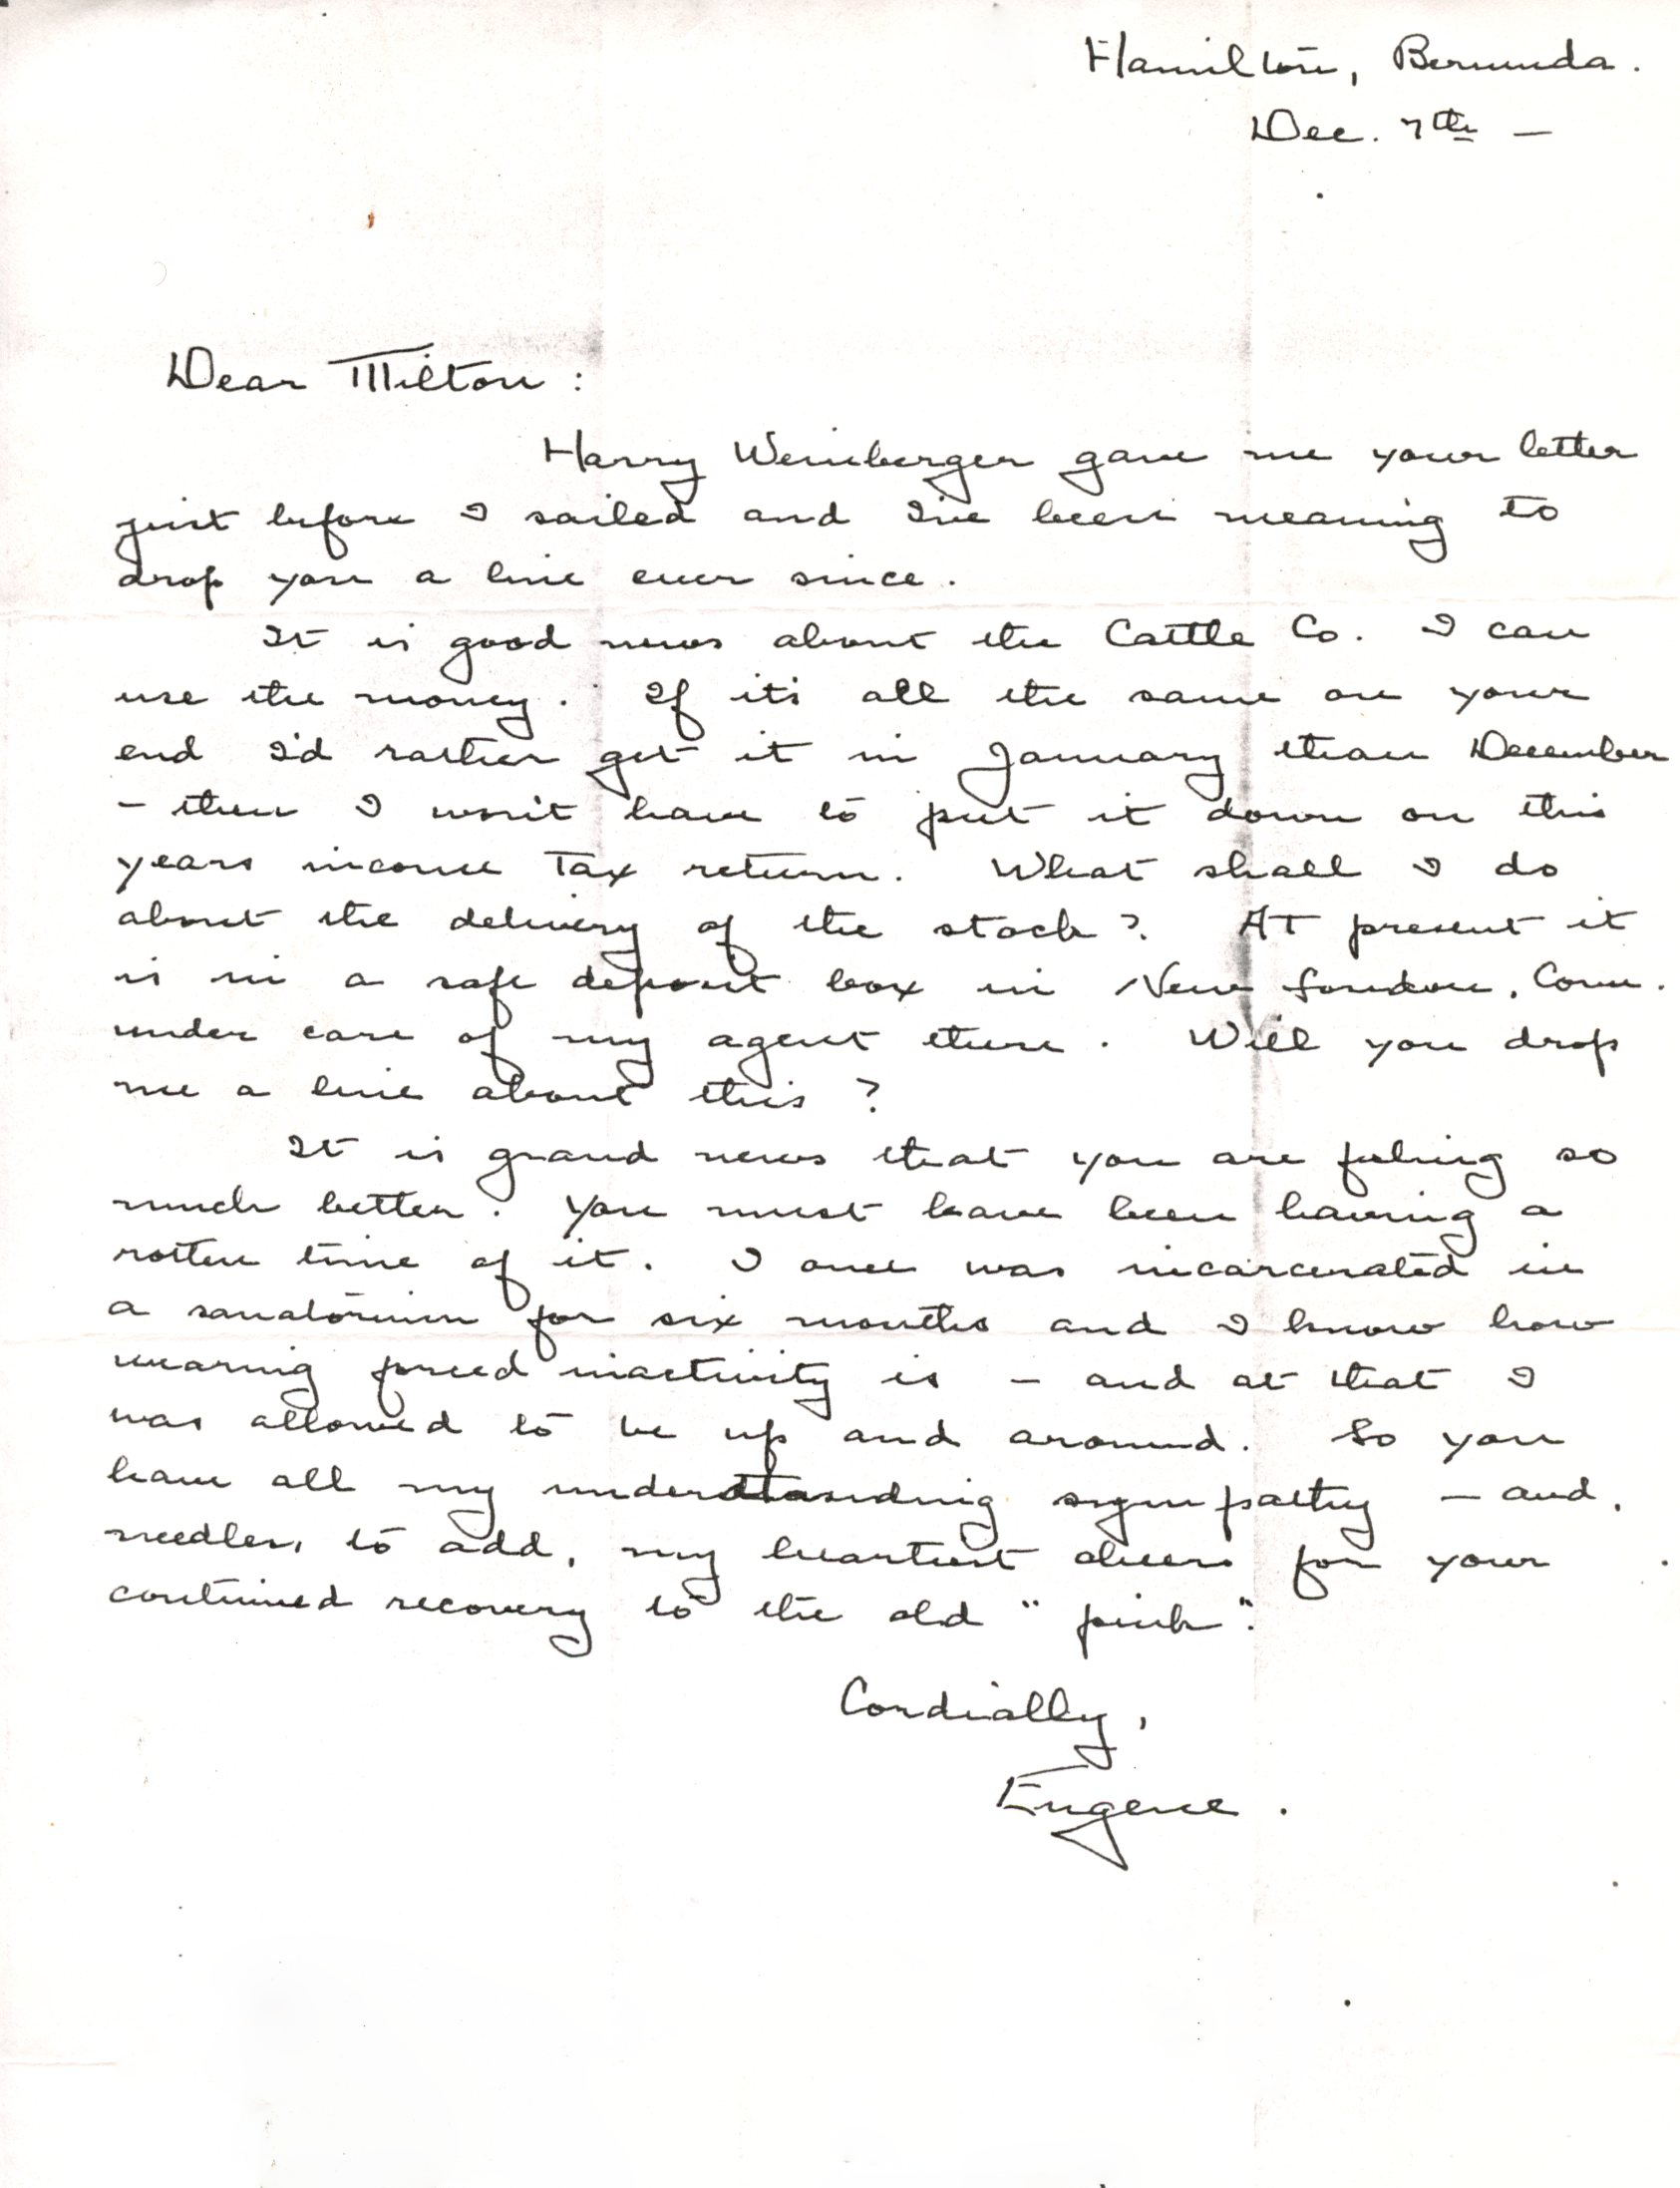 Hamilton, Bermuda.
Dec. 7th —
Dear Milton:
Harry Weinberger gave me your letter
just before I sailed and I've been meaning to
drop you a line ever since.
It is good news about the Cattle Co. I can
use the money. If it's all the same on your
end I'd rather get it in January than December
— then I won't have to put it down on this
years income tax return. What shall I do
about the delivery of the stock? At present it
is in a safe deposit box in New London, Conn.
under care of my agent there. Will you drop
me a line about this?
It is grand news that you are feeling so
much better. You must have been having a
rotten time of it. I once was incarcerated in
a sanatorium for six months and I know how
wearing forced inactivity is — and at that I
was allowed to be up and around. So you
have all my understanding sympathy — and,
needless to add, my heartiest cheers for your
continued recovery to the old "pink".
Cordially,
Eugene.